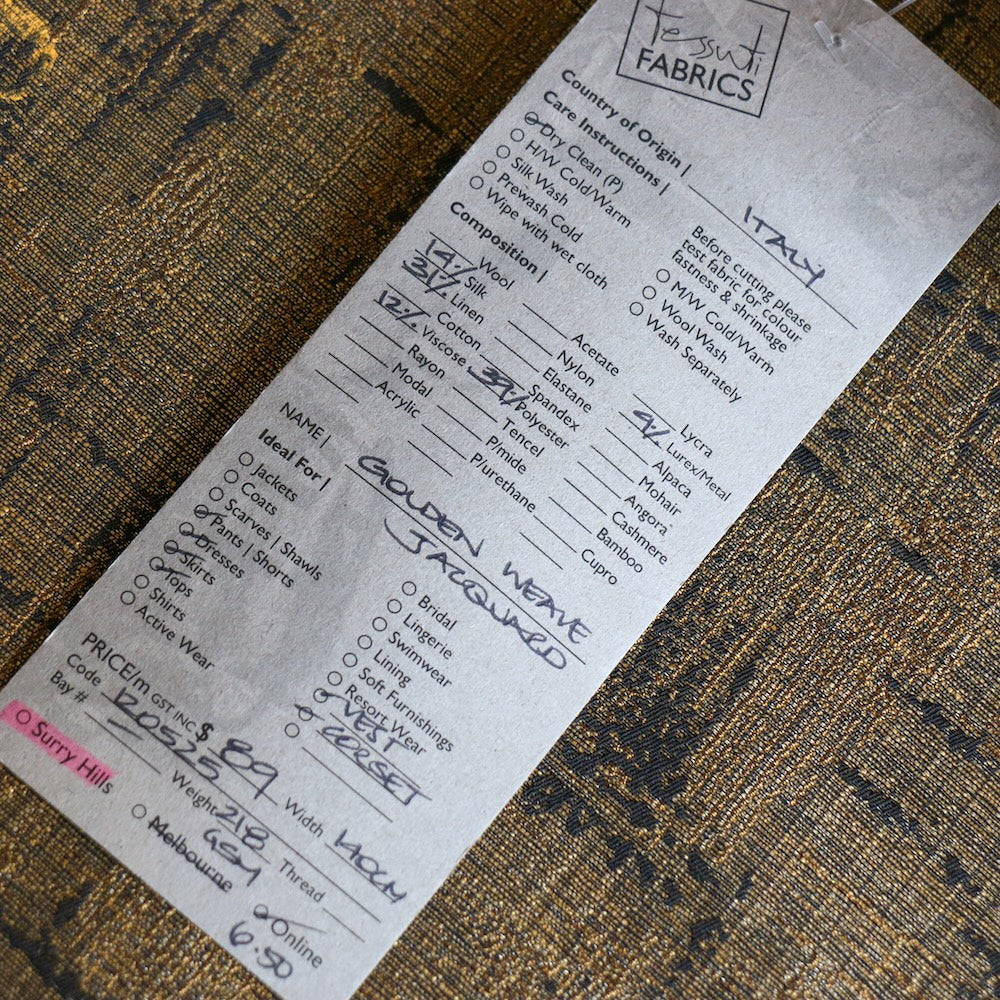 tessuti
FABRICS
Country of Origin | ITALY
Care Instructions |
Dry Clean (P)
H/W Cold/Warm
Silk Wash
Prewash Cold
Wipe with wet cloth
Before cutting please
test fabric for colour
fastness & shrinkage
M/W Cold/Warm
Wool Wash
Wash Separately
Composition |
14% Wool
31% Silk
Linen
12% Cotton
Viscose
Rayon
Modal
Acrylic
Acetate
Nylon
Elastane
Spandex
39% Polyester
Tencel
P/mide
P/urethane
Lycra
4% Lurex/Metal
Alpaca
Mohair
Angora
Cashmere
Bamboo
Cupro
NAME | GOLDEN WEAVE
JACQUARD
Ideal For |
Jackets
Coats
Scarves | Shawls
Pants | Shorts
Dresses
Skirts
Tops
Shirts
Active Wear
Bridal
Lingerie
Swimwear
Lining
Soft Furnishings
Resort Wear
VEST
CORSET
PRICE/m GST INC $ 89
Width 140CM
Code 120525
Weight 218 GSM
Bay #
Thread
Surry Hills
Melbourne
Online
6.50